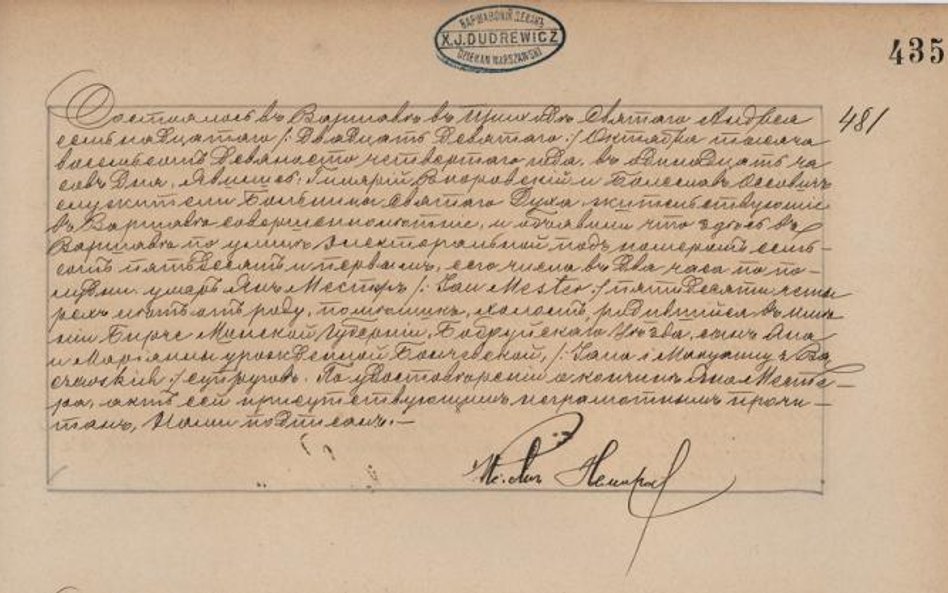 ВАРШАВСКІЙ ДЕКАНЪ
X.J.DUDREWICZ
DZIEKAN WARSZAWSKI
435
481
Состоялось въ Варшавѣ въ Приходѣ Святаго Андрея
семьнадцатаго /: двадцать девятаго :/ Октября тысяча
восемьсотъ девяносто четвертаго года, въ двѣнадцать ча-
совъ дня. Явились: Гиларій и Болеславъ Оссовичъ
служители Больницы Святаго Духа жительствующіе
въ Варшавѣ совершеннолѣтніе, и объявили что здѣсь въ
Варшавѣ по улицѣ Электоральной подъ номеромъ семь-
сотъ пятьдесятъ первымъ, сего числа въ два часа по по-
лудни умеръ Янъ Местеръ /: Jan Mester :/ пятидесяти четы
рехъ лѣтъ отъ роду, холостъ, родившійся въ имѣ
ніи Минской Губерніи, Бобруйскаго Уѣзда, сынъ Яна
и Маріанны урожденной Бончевской, /: Jana i Maryanny z
:/ супруговъ. По удостовѣреніи о кончинѣ Яна Месте-
ра, актъ сей присутствующимъ неграмотнымъ прочи-
танъ, Нами подписанъ.—